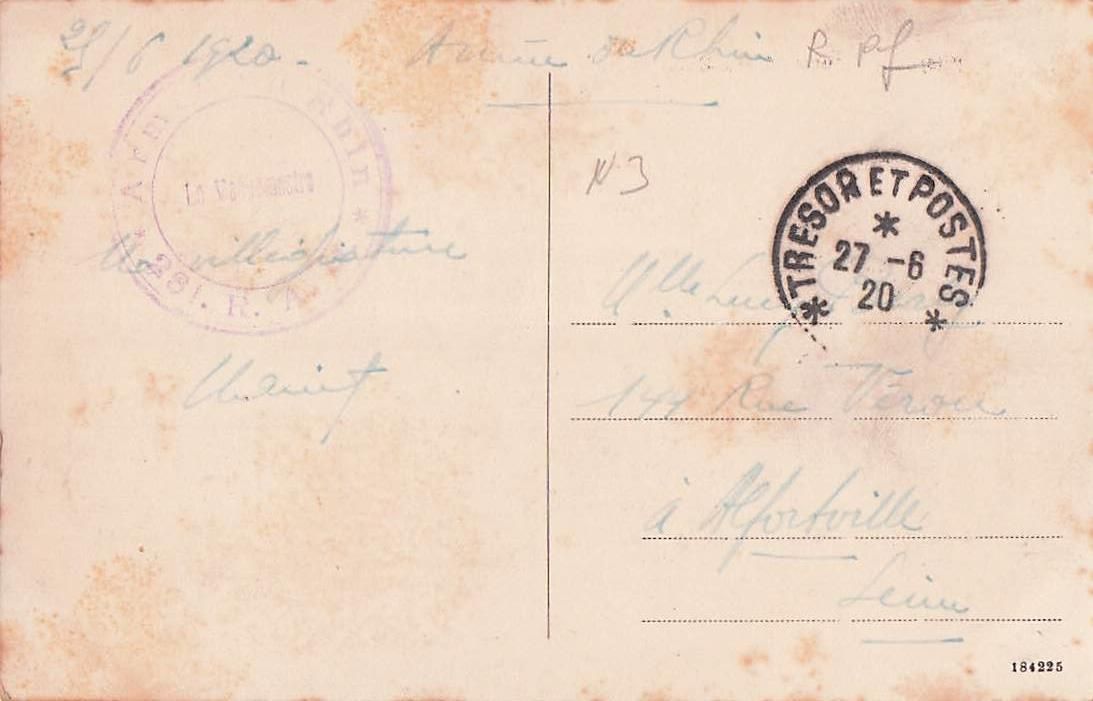 25/6 1920 - Armée du Rhin
N 3
Armée du Rhin
Le Vaguemestre
* 281. R. A. *
villégiature
TRESOR ET POSTES
27 - 6
20
Mlle Lucy
144 Rue Véron
à Alfortville
Seine
184225